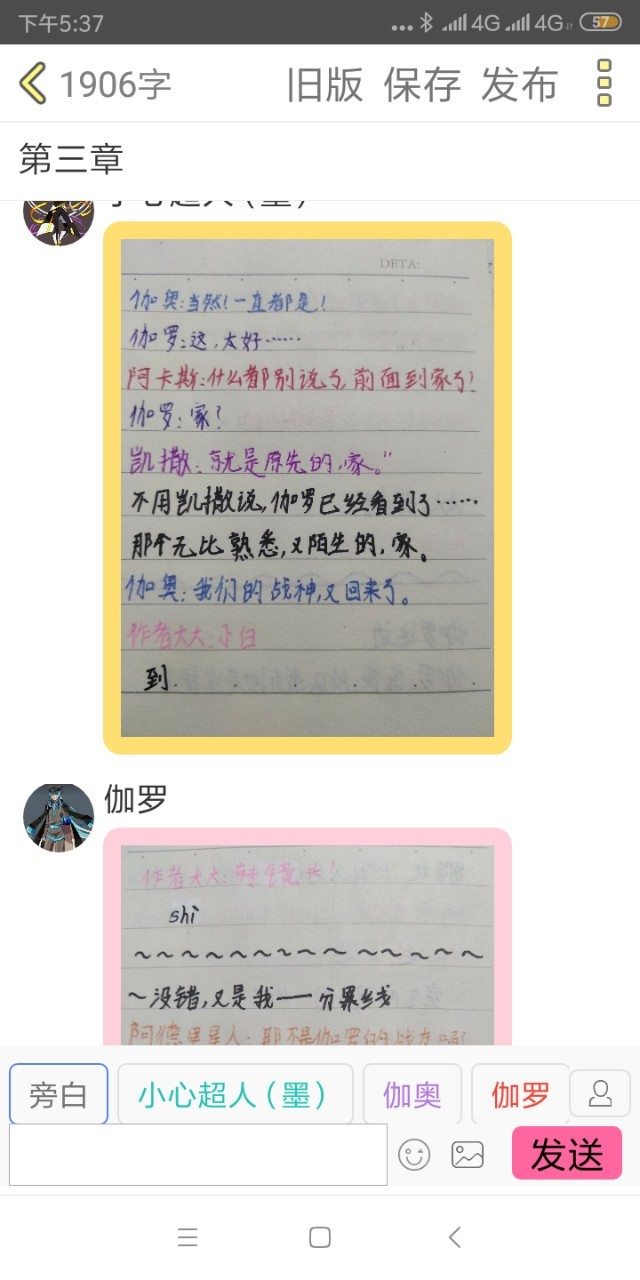 下午5:37
4G
4G
57
1906字
旧版 保存 发布
第三章
小心超人(墨)
DETA:
伽奥:当然!一直都是!
伽罗:这,太好……
阿卡斯:什么都别说了,前面到家了!
伽罗:家?
凯撒:就是原先的,家。”
不用凯撒说,伽罗已经看到了……
那个无比熟悉,又陌生的,家。
伽奥:我们的战神,又回来了。
作者大大:小白
到.
伽罗
作者大大:
shi
~~~~~~~~~~~~~~
~没错,又是我——分界线
阿德里星人:那不是伽罗的战友吗
旁白
小心超人(墨)
伽奥
伽罗
发送